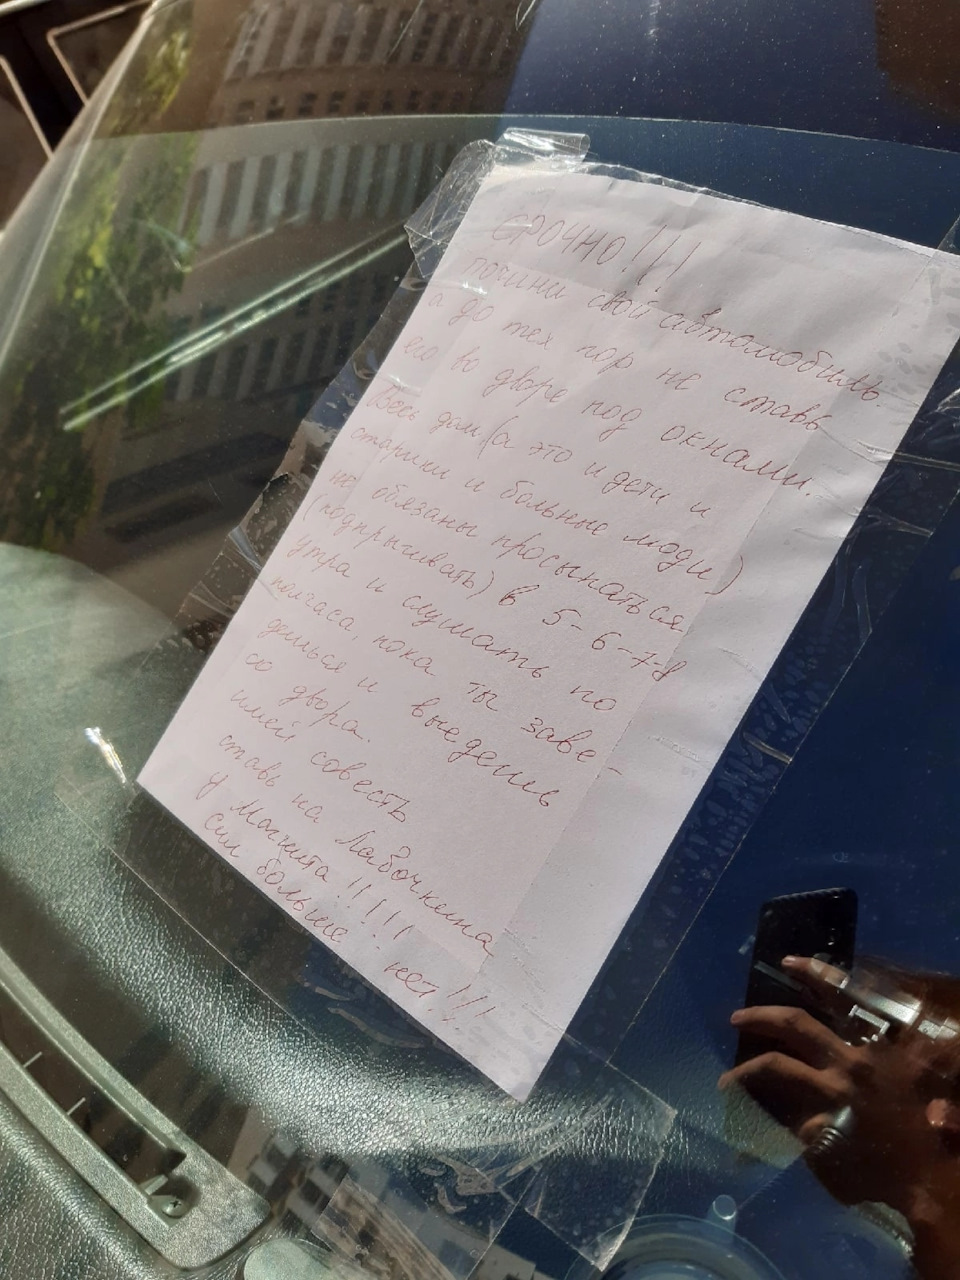 СРОЧНО!!!
почини свой автомобиль.
а до тех пор не ставь
его во дворе под окнами.
Весь дом (а это и дети и
старики и больные люди)
не обязаны просыпаться
(подпрыгивать) в 5-6-7-8
утра и слушать по
полчаса, пока ты заве-
дешься и выедешь
со двора.
имей совесть
ставь на Лавочкина
у Магнита!!!!!
Сил больше нет!!!